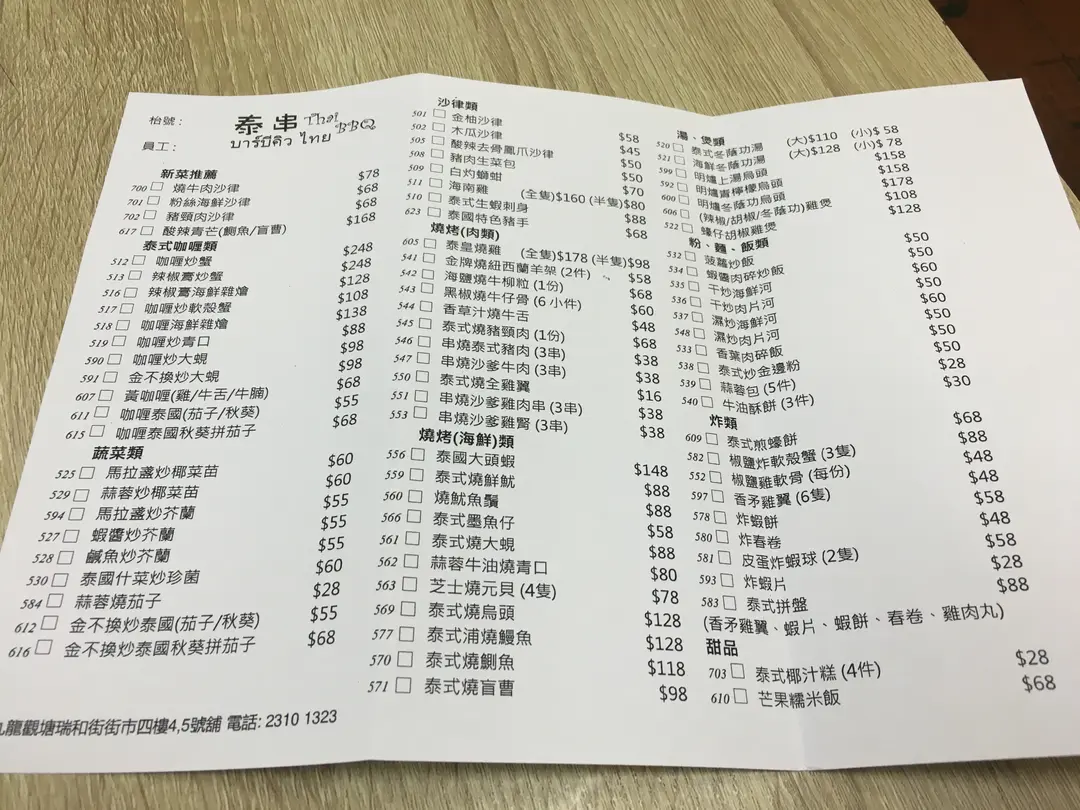 枱號:
員工:
泰串 Thai BBQ
บาร์บีคิว ไทย
新菜推薦
700 燒牛肉沙律 $78
701 粉絲海鮮沙律 $68
702 豬頸肉沙律 $68
617 酸辣青芒(鰂魚/盲曹) $168
泰式咖喱類
512 咖喱炒蟹 $248
513 辣椒膏炒蟹 $248
516 辣椒膏海鮮雜燴 $128
517 咖喱炒軟殼蟹 $108
518 咖喱海鮮雜燴 $138
519 咖喱炒青口 $88
590 咖喱炒大蜆 $98
591 金不換炒大蜆 $98
607 黃咖喱(雞/牛舌/牛腩) $68
611 咖喱泰國(茄子/秋葵) $55
615 咖喱泰國秋葵拼茄子 $68
蔬菜類
525 馬拉盞炒椰菜苗 $60
529 蒜蓉炒椰菜苗 $60
594 馬拉盞炒芥蘭 $55
527 蝦醬炒芥蘭 $55
528 鹹魚炒芥蘭 $55
530 泰國什菜炒珍菌 $60
584 蒜蓉燒茄子 $28
612 金不換炒泰國(茄子/秋葵) $55
616 金不換炒泰國秋葵拼茄子 $68
九龍觀塘瑞和街街市四樓4,5號舖 電話: 2310 1323
沙律類
501 金柚沙律 $58
502 木瓜沙律 $45
505 酸辣去骨鳳爪沙律 $50
508 豬肉生菜包 $50
509 白灼螄蚶 $70
511 海南雞 (全隻)$160 (半隻)$80
510 泰式生蝦刺身 $88
623 泰國特色豬手 $68
燒烤(肉類)
605 泰皇燒雞 (全隻)$178 (半隻)$98
541 金牌燒紐西蘭羊架 (2件) $58
542 海鹽燒牛柳粒 (1份) $68
543 黑椒燒牛仔骨 (6 小件) $60
544 香草汁燒牛舌 $48
545 泰式燒豬頸肉 (1份) $68
546 串燒泰式豬肉 (3串) $38
547 串燒沙爹牛肉 (3串) $38
550 泰式燒全雞翼 $16
551 串燒沙爹雞肉串 (3串) $38
553 串燒沙爹雞腎 (3串) $38
燒烤(海鮮)類
556 泰國大頭蝦 $148
559 泰式燒鮮魷 $88
560 燒魷魚鬚 $88
566 泰式墨魚仔 $58
561 泰式燒大蜆 $88
562 蒜蓉牛油燒青口 $80
563 芝士燒元貝 (4隻) $78
569 泰式燒烏頭 $128
577 泰式浦燒鰻魚 $128
570 泰式燒鰂魚 $118
571 泰式燒盲曹 $98
湯、煲類
520 泰式冬蔭功湯 (大)$110 (小)$ 58
521 海鮮冬蔭功湯 (大)$128 (小)$ 78
599 明爐上湯烏頭 $158
592 明爐青檸檬烏頭 $158
600 明爐冬蔭功烏頭 $178
606 (辣椒/胡椒/冬蔭功)雞煲 $108
522 蠔仔胡椒雞煲 $128
粉、麵、飯類
532 菠蘿炒飯 $50
534 蝦醬肉碎炒飯 $50
535 干炒海鮮河 $60
536 干炒肉片河 $50
537 濕炒海鮮河 $60
548 濕炒肉片河 $50
533 香葉肉碎飯 $50
538 泰式炒金邊粉 $50
539 蒜蓉包 (5件) $28
540 牛油酥餅 (3件) $30
炸類
609 泰式煎蠔餅 $68
582 椒鹽炸軟殼蟹 (3隻) $88
552 椒鹽雞軟骨 (每份) $48
597 香茅雞翼 (6隻) $48
578 炸蝦餅 $58
580 炸春卷 $48
581 皮蛋炸蝦球 (2隻) $58
593 炸蝦片 $28
583 泰式拼盤 $88
(香茅雞翼、蝦片、蝦餅、春卷、雞肉丸)
甜品
703 泰式椰汁糕 (4件) $28
610 芒果糯米飯 $68